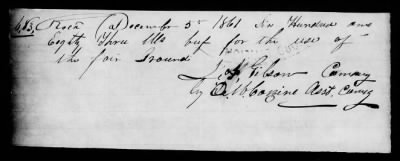 683, Recd December 5th 1861 Six Hundred and
Eighty Three lbs beef for the use of
the fair Ground
Gibson Comsary
by Asst. Comsy